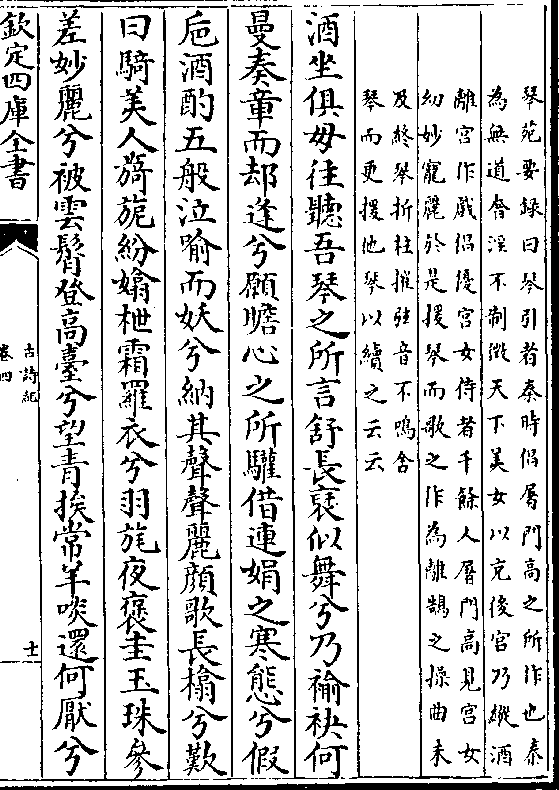 琴苑要錄曰琴引者秦時倡屠門高之所作也秦
為無道奢淫不制徵天下美女以充後宮乃縱酒
離宮作戲倡優宮女侍者千餘人屠門高見宮女
幼妙寵麗於是援琴而歌之作為離鵠之操曲未
及終琴折柱摧弦音不鳴舍
琴而更援他琴以續之云云
酒坐俱毋往聽吾琴之所言舒長褎似舞兮乃褕袂何
曼奏章而却逢兮願瞻心之所驩借連娟之寒態兮假
巵酒酌五般泣喻而妖兮納其聲聲麗顔歌長檹兮歎
曰騎美人旖旎紛嬆枻霜羅衣兮羽旄夜褒圭玉珠參
差妙麗兮被雲髾登高臺兮望青挨常羊啖還何厭兮
欽定四庫全書
古詩紀
卷四
士